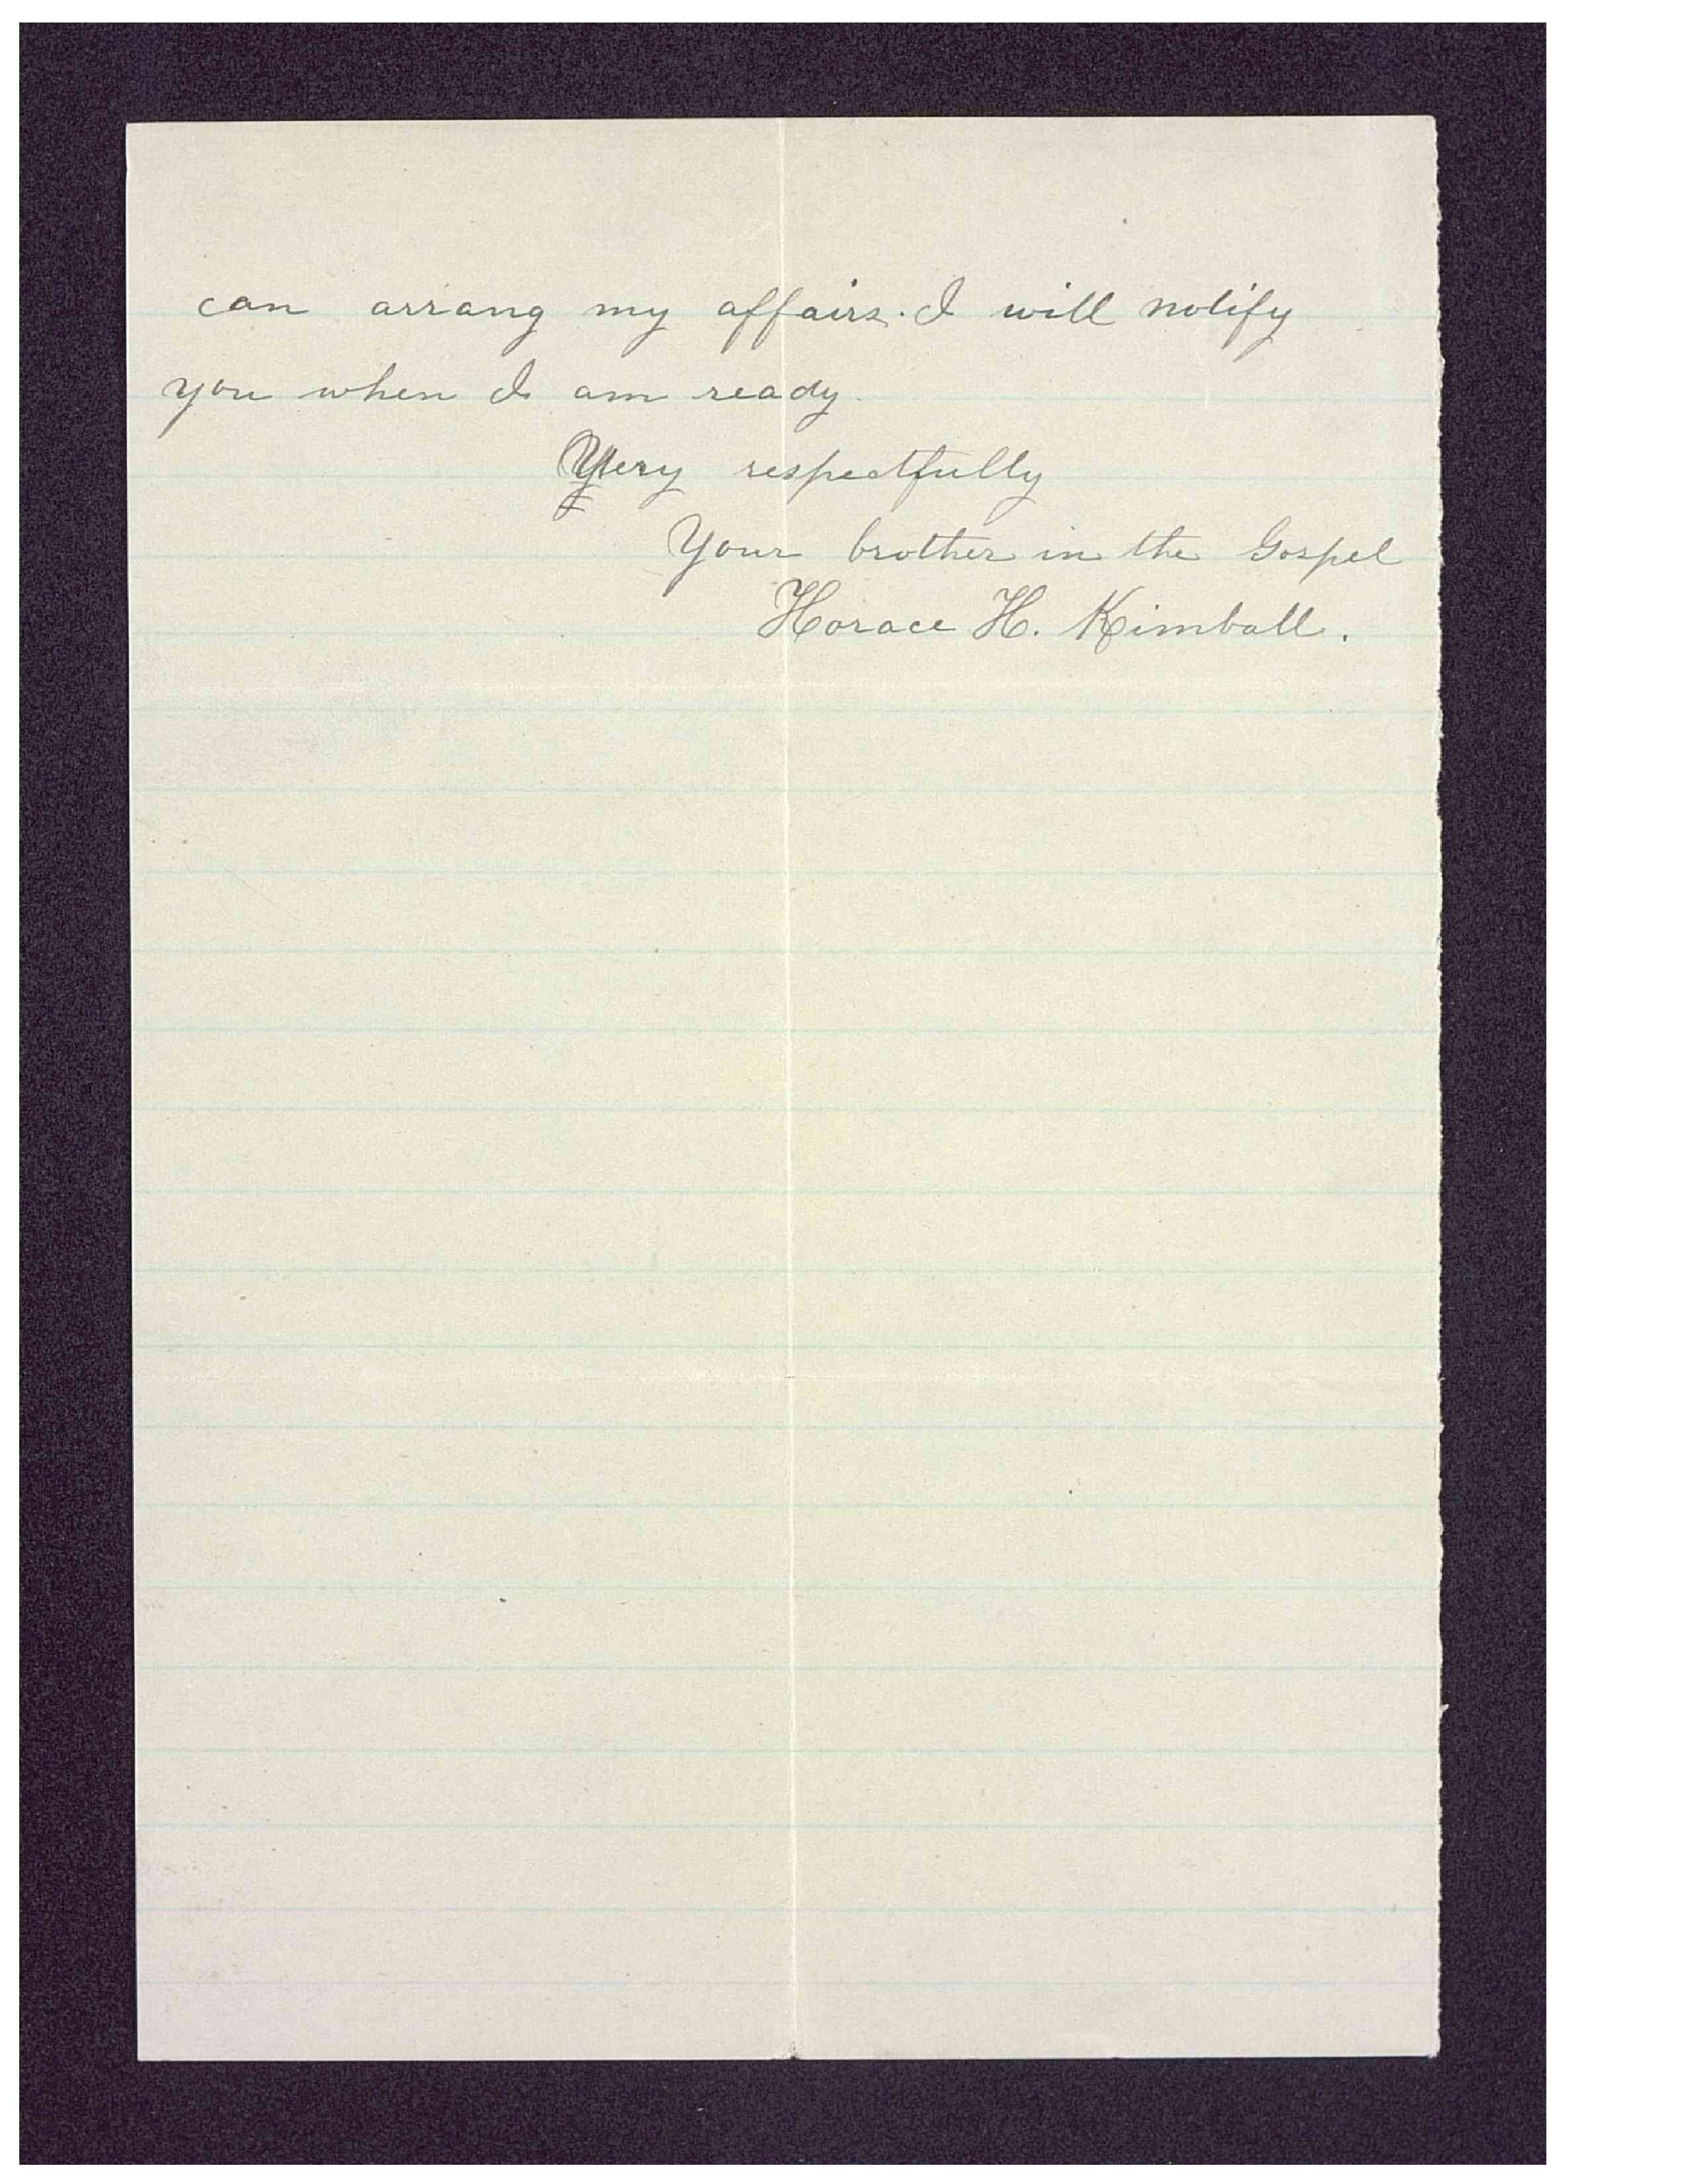 can arrang my affairs. I will notify
you when I am ready.
Very respectfully
Your brother in the Gospel
Horace H. Kimball.